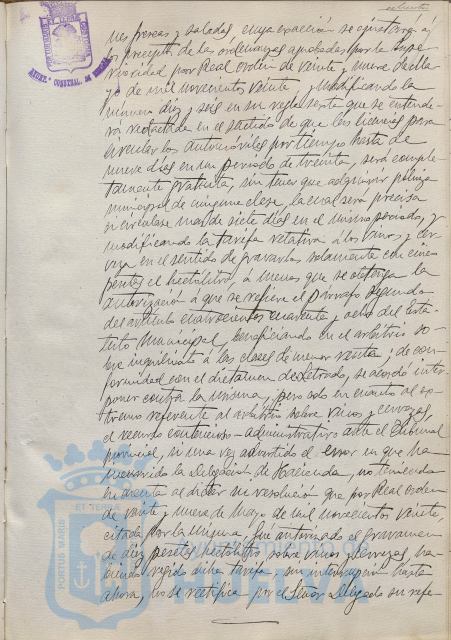 nes frescas y saladas cuya exacción se ajustará á
los preceptos de las ordenanzas aprobadas por la Supe-
rioridad por Real orden de veinte y nueve de Ma-
yo de mil novecientos veinte y modificando la
número diez y seis en su reglamento que se entende-
rá redactada en el sentido de que las licencias para
circular los automóviles por tiempo hasta de
nueve días en un período de treinta, será comple-
tamente gratuita, sin tener que adquirir póliza
municipal de ninguna clase, la cual será precisa
si circulase mas de siete días en el mismo período, y
modificando la tarifa relativa á los vinos y cer-
veza en el sentido de gravarlos solamente con cinco
pesetas el hectólitro, á menos que se obtenga la
autorización á que se refiere el párrafo segundo
del artículo cuatrocientos cuarenta y ocho del Esta-
tuto Municipal, beneficiando en el arbitrio so-
bre inquilinato á las clases de menor renta; de con-
formidad con el dictamen de Letrado, se acordó inter-
poner contra la misma, pero solo en cuanto al ex-
tremo referente al arbitrio sobre vinos y cervezas,
el recurso contencioso-administrativo ante el Tribunal
provincial, si una vez advertido el error en que ha
incurrido la Delegación de Hacienda, no teniendo
en cuenta al dictar su resolución que por Real orden
de veinte y nueve de Mayo de mil novecientos veinte,
citada por la misma, fué autorizado el gravamen
de diez pesetas hectólitro sobre vinos y cervezas, ha-
biendo regido dicha tarifa, sin interrupción hasta
ahora, no se rectifica por el Señor Delegado su refe-
ET TERRA
PORTUS MARIS